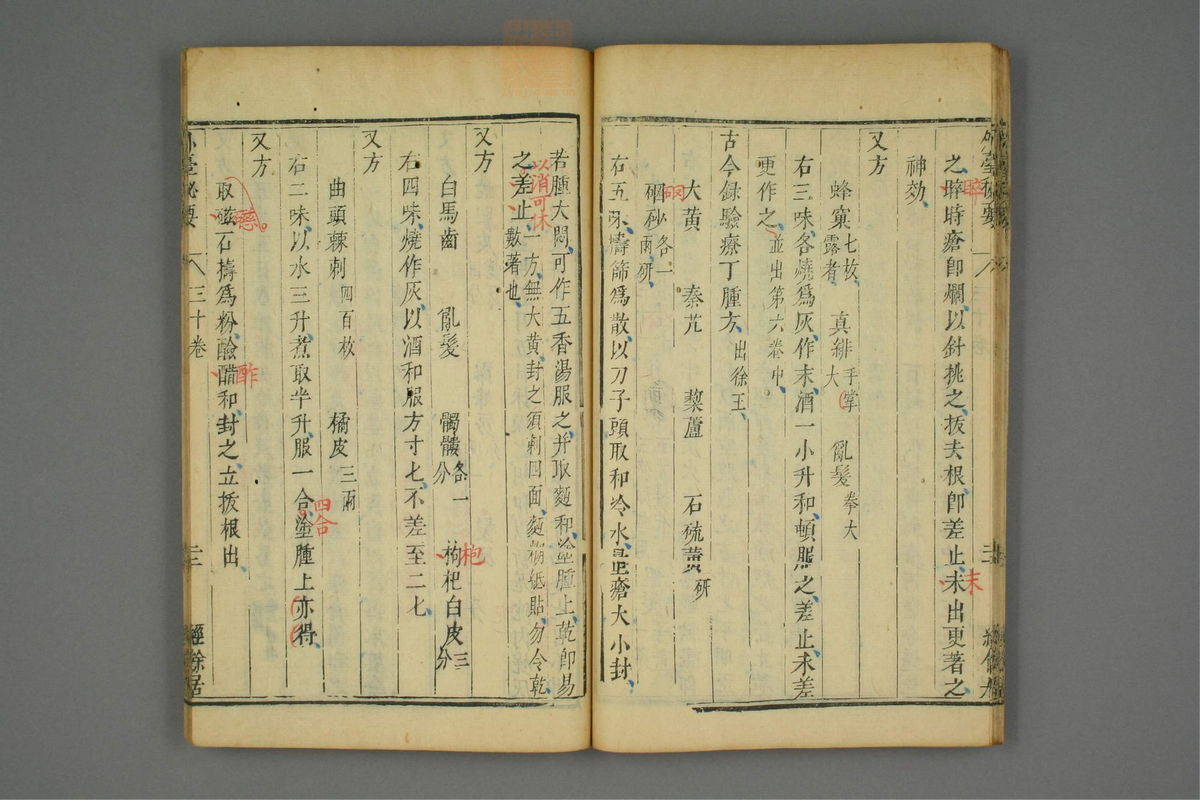 之晬時瘡卽爛以針挑之拔去根卽差止未出更著之
神効
又方
蜂窠七枚露者 真緋手掌大 亂髮拳大
右三味各燒為灰作末酒一小升和頓服之差止未差
更作之並出第六卷中
古今錄驗療丁腫方出徐王
大黃 秦艽 藜蘆 石硫黃研
硇砂各一兩研
右五味擣篩為散以刀子頭取和冷水量瘡大小封
若腫大悶可作五香湯服之并取麪和塗腫上乾卽易
之差止一方無大黃封之須刺四面麪糊紙貼勿令乾
數著也
又方
白馬齒 亂髮 髑髏各一分 枸杞白皮三分
右四味燒作灰以酒和服方寸七不差至二七
又方
曲頭棘刺四百枚 橘皮三兩
右二味以水三升煮取半升服一合塗腫上亦得
又方
取磁石擣為粉醶醋和封之立拔根出
外臺秘要 三十卷 經餘居